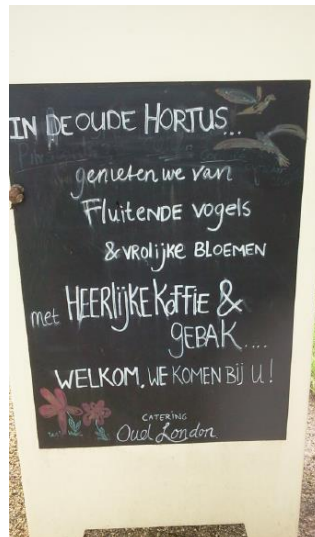 IN DE OUDE HORTUS...
genieten we van
Fluitende vogels
& vrolijke BLOEMEN
met HEERLIJKE KOFFIE &
GEBAK....
WELKOM, WE KOMEN BIJ U!
CATERING
Oud London